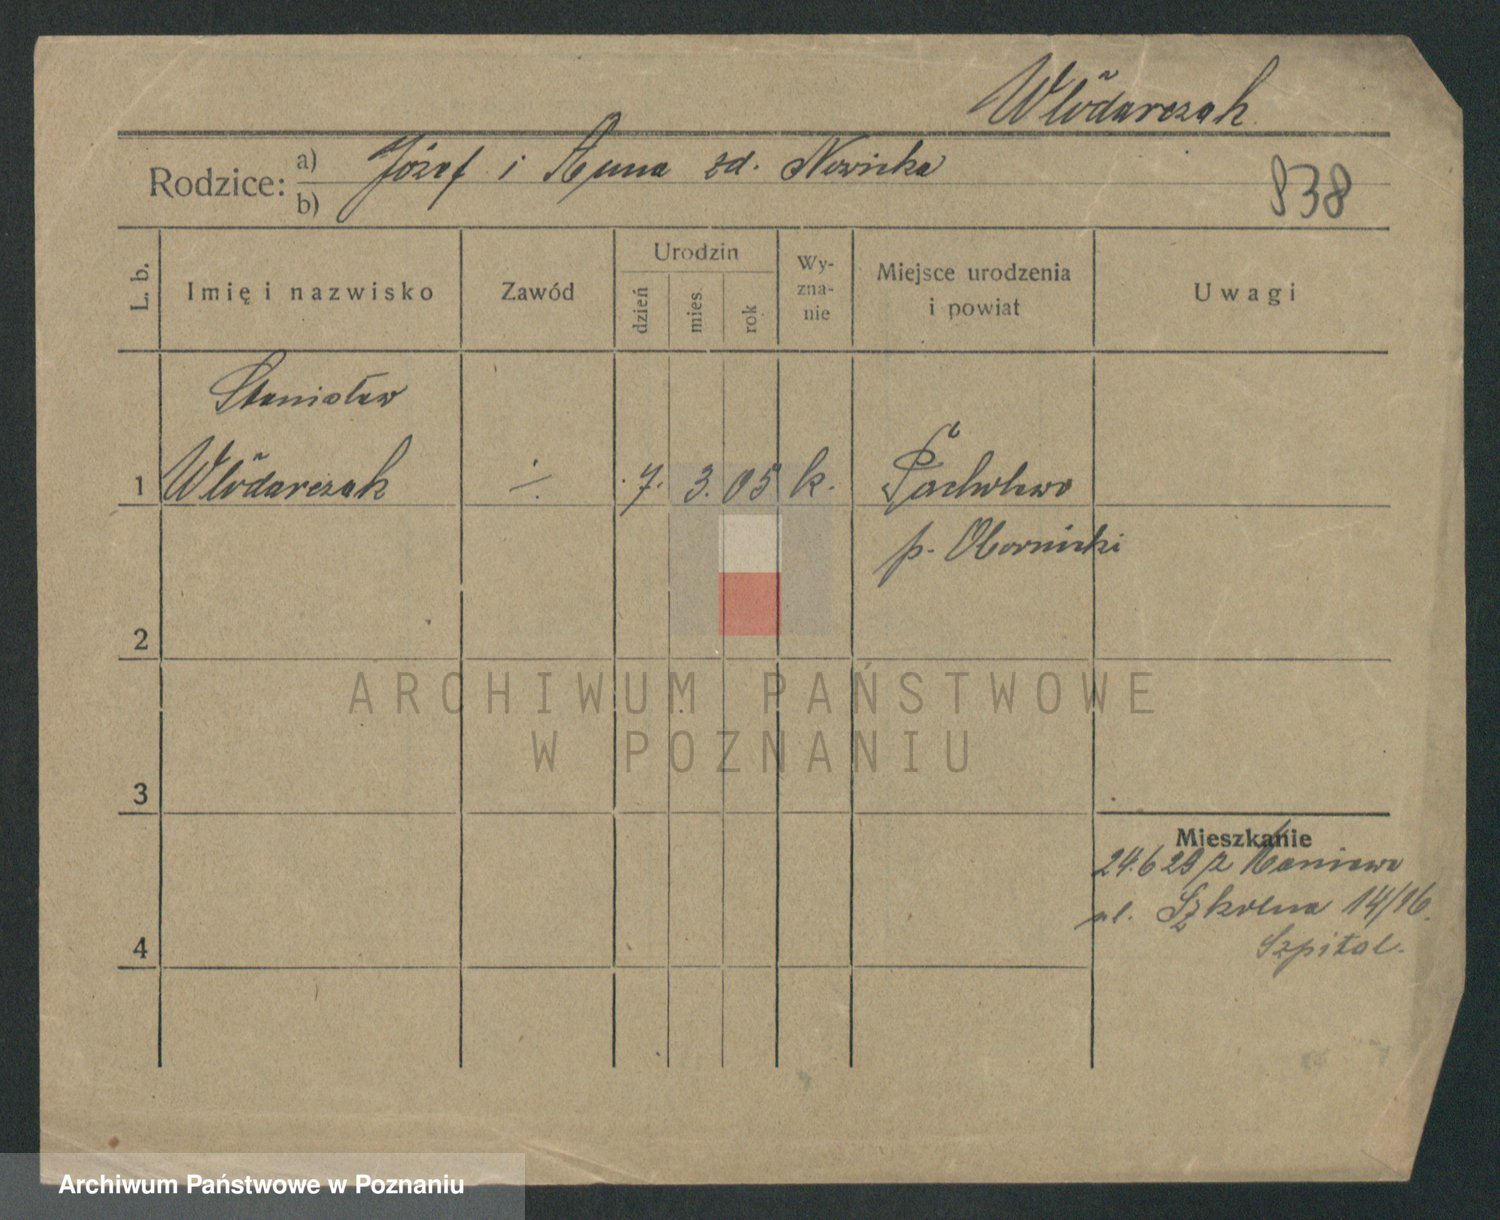 Włodarczak
Rodzice: a) Józef i Anna zd. Nowicka
b)
838
L. b.
Imię i nazwisko
Zawód
Urodzin
dzień
mies.
rok
Wy-
zna-
nie
Miejsce urodzenia
i powiat
Uwagi
Stanisław
1 Włodarczak ·/. 7. 3. 05 k. Pacholewo
p. Obornicki
2
ARCHIWUM PAŃSTWOWE
W POZNANIU
3
Mieszkanie
24.6 29 z
ul. Szkolna 14/16.
Szpital.
4
Archiwum Państwowe w Poznaniu